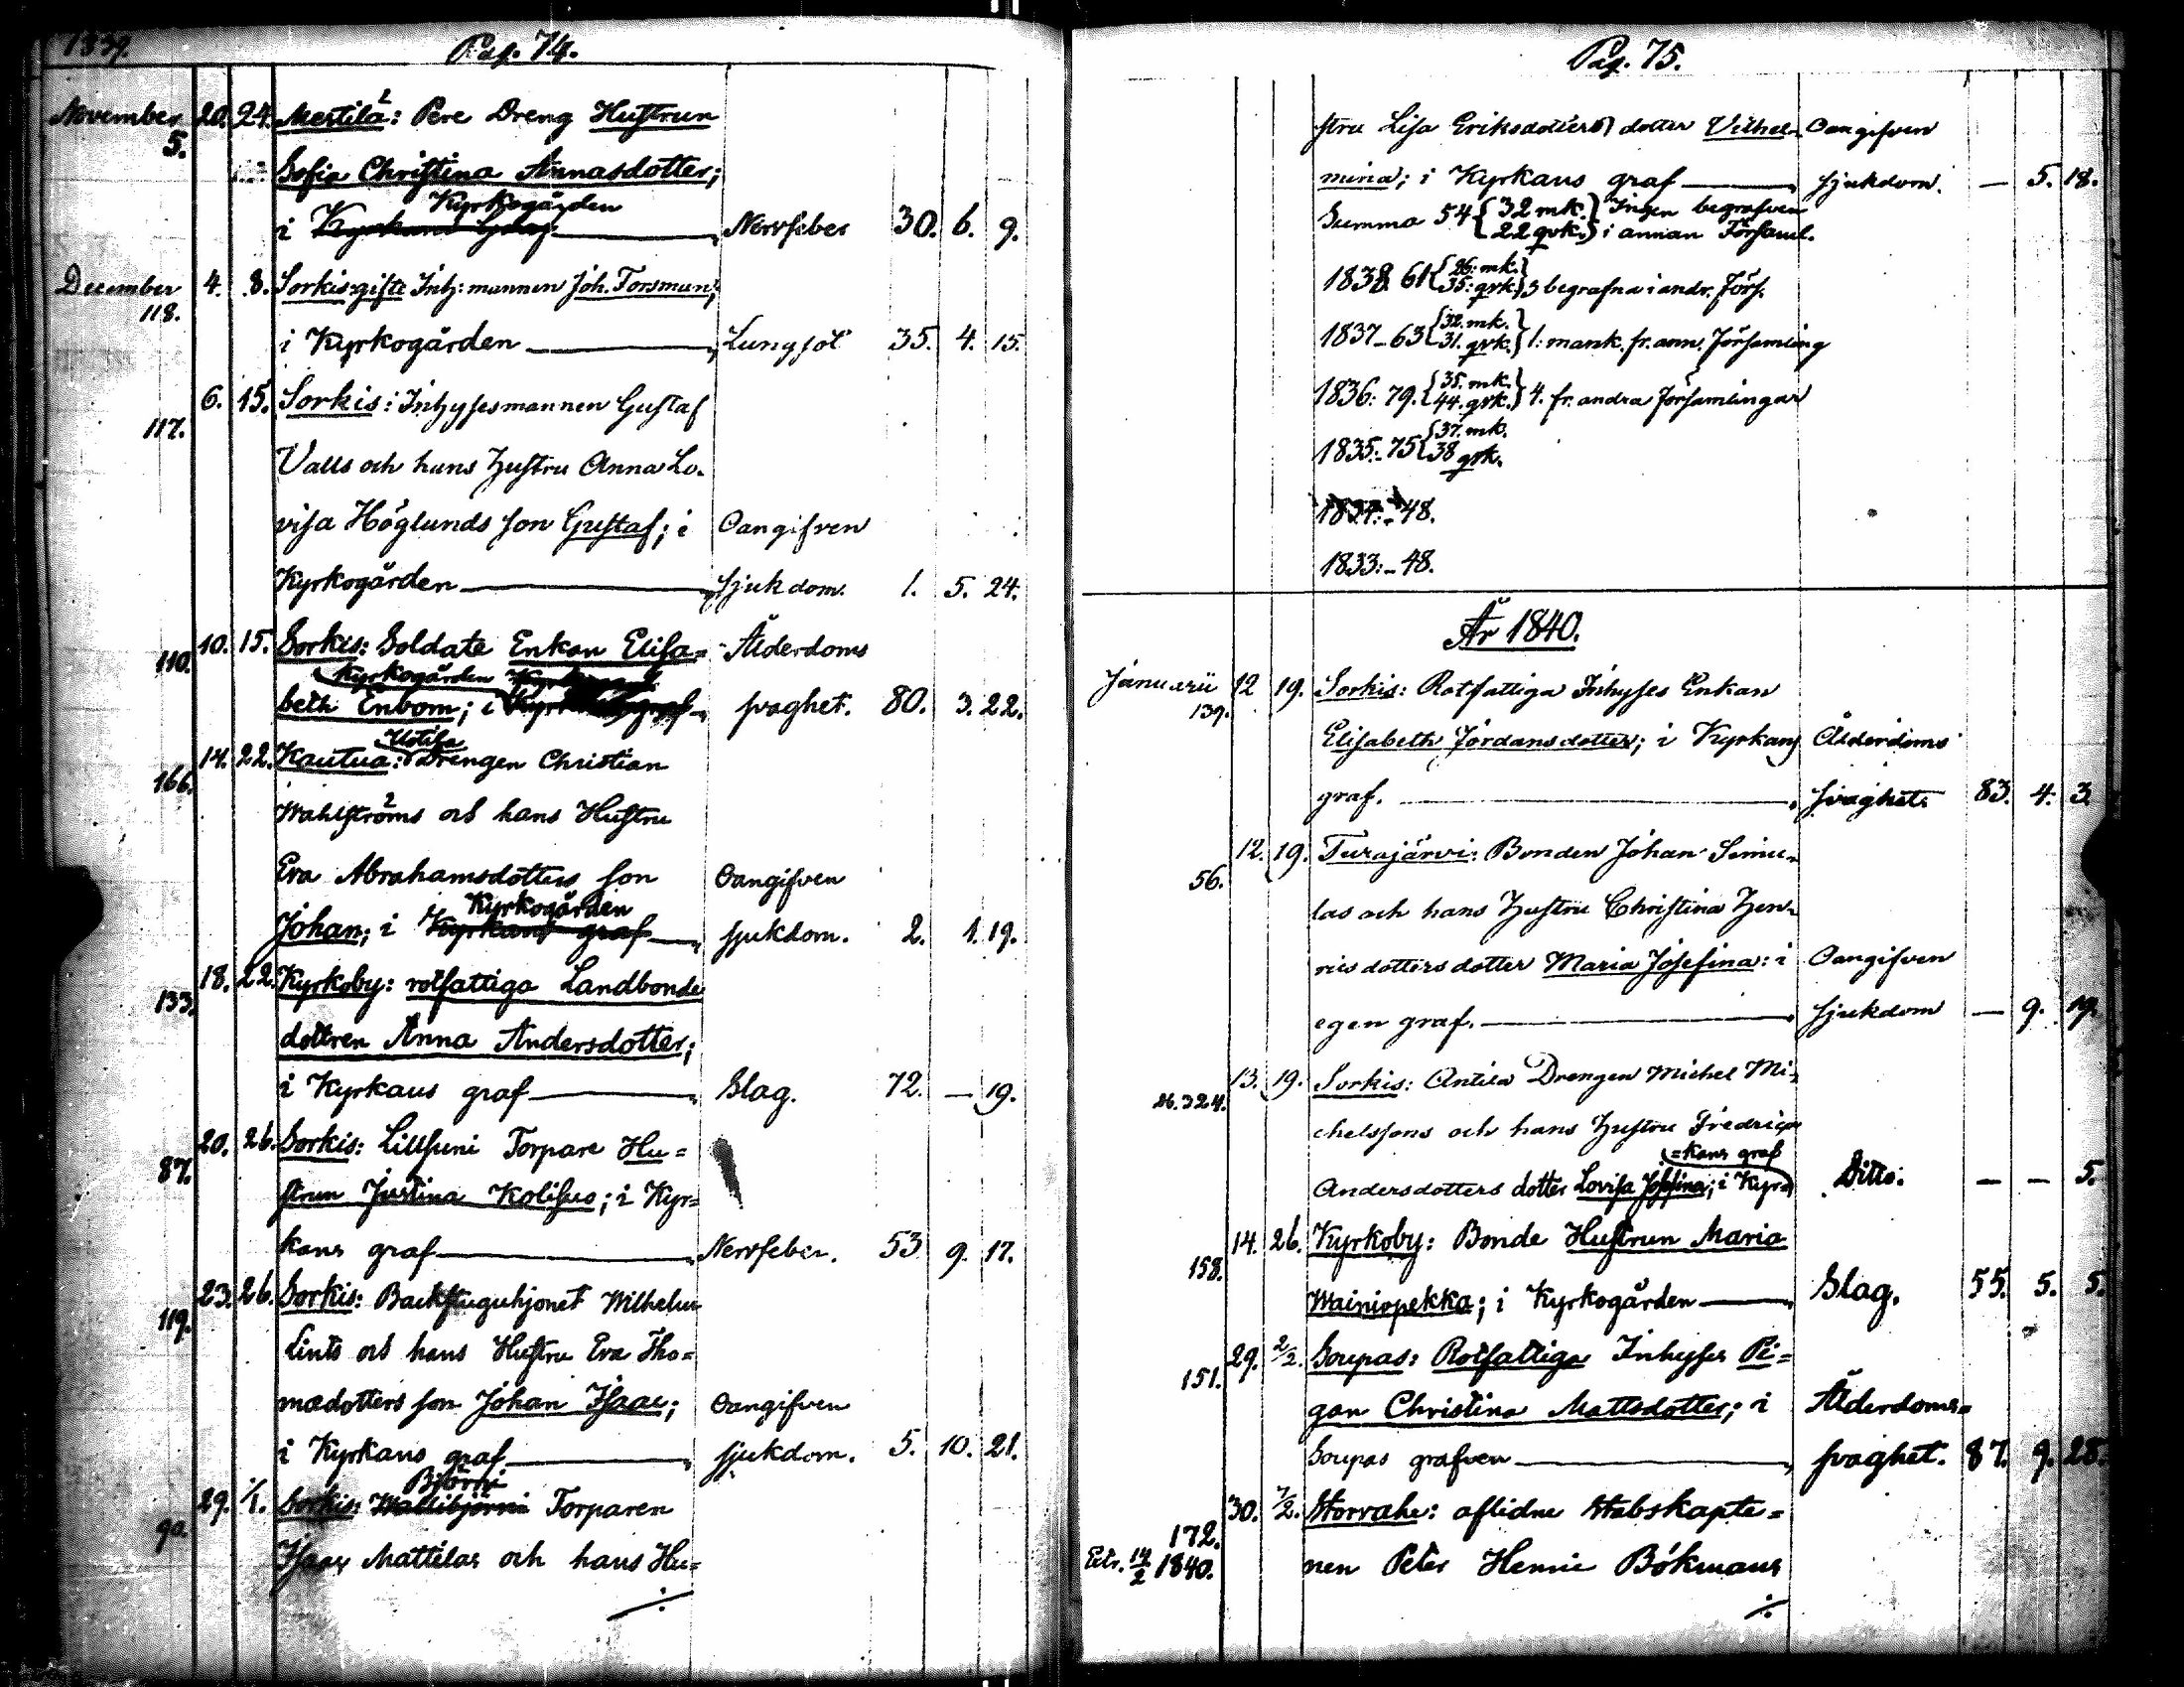 1839.
Pag. 74.
November 20. 24. Mertila: Pere Dreng Hustrun
5.
Sofia Christina Annasdotter;
Kyrkogården
i Kyrkans graf Nervfeber 30. 6. 9.
December 4. 8. Sorkis: gifte Inh: mannen Joh. Forsman;
118.
i Kyrkogården Lungsot 35. 4. 15.
6. 15. Sorkis: Inhysesmannen Gustaf
117.
Valls och hans hustru Anna Lo-
visa Höglunds son Gustaf; i Oangifven
Kyrkogården sjukdom. 1. 5. 24.
10. 15. Sorkis: Soldate Enkan Elisa= Ålderdoms
110.
Kyrkogården
beth Enbom; i svaghet. 80. 3. 22.
Uotila
14. 22. Kautua: Drengen Christian
166.
Wahlströms och hans Hustru
Eva Abrahamsdotters son Oangifven
Kyrkogården
Johan; i Kyrkans graf sjukdom. 2. 1. 19.
18. 22. Kyrkoby: rotfattiga Landbonde
133.
dottren Anna Andersdotter;
i Kyrkans graf Slag. 72. — 19.
20. 26. Sorkis: Lillsuni Torpare Hu=
87.
strun Justina Kolisus; i Kyr=
kans graf Nervfeber. 53 9. 17.
23. 26. Sorkis: Backstuguhjonet Wilhelm
119.
Lints och hans Hustru Eva Tho=
mædotters son Johan Isaac; Oangifven
i Kyrkans graf sjukdom. 5. 10. 21.
Björni
29. 1/1. Sorkis: Wallibjörni Torparen
90
Isaac Mattilas och hans Hu=
÷
Pag. 75.
stru Lisa Eriksdotters dotter Vilhel- Oangifven
mina; i Kyrkans graf sjukdom. — 5. 18.
Summa 54 { 32 mk. 22 qvk. } Ingen begrafven i annan Församl.
1838. 61 { 26. mk. 35. qvk. } 3 begrafna i andr. Förs.
1837 - 63 { 32. mk. 31. qvk. } 1. mank. fr. ann. Församling
1836: 79. { 35. mk. 44. qvk. } 4. fr. andra församlingar
1835: - 75 { 37. mk. 38 qvk.
1834: - 48.
1833: - 48.
År 1840.
Januarii 12 19. Sorkis: Rotfattiga Inhyses Enkan
139.
Elisabeth Jordansdotter; i Kyrkans Ålderdoms
graf. svaghet. 83. 4. 3.
12. 19. Turajärvi: Bonden Johan Simu-
56.
las och hans hustru Christina Hen-
ricsdotters dotter Maria Josefina: i Oangifven
egen graf. sjukdom — 9. 19.
13. 19. Sorkis: Antila Drengen Michel Mi-
26. 324.
chelssons och hans hustru Fredrica
=kans graf
Andersdotters dotter Lovisa Josefina; i Kyr= Ditto. — — 5.
14. 26. Kyrkoby: Bonde Hustrun Maria
158.
Wainiopekka; i Kyrkogården Slag. 55. 5. 5.
29. 2/2. Soupas: Rotfattiga Inhyses Pi=
151.
gan Christina Mattsdotter; i Ålderdoms=
Soupas grafven svaghet. 87. 9. 28.
30. 7/2. Storvahe: aflidne Stabskapte=
172.
nen Peter Henric Bökmans
Extr. 14/2 1840.
÷